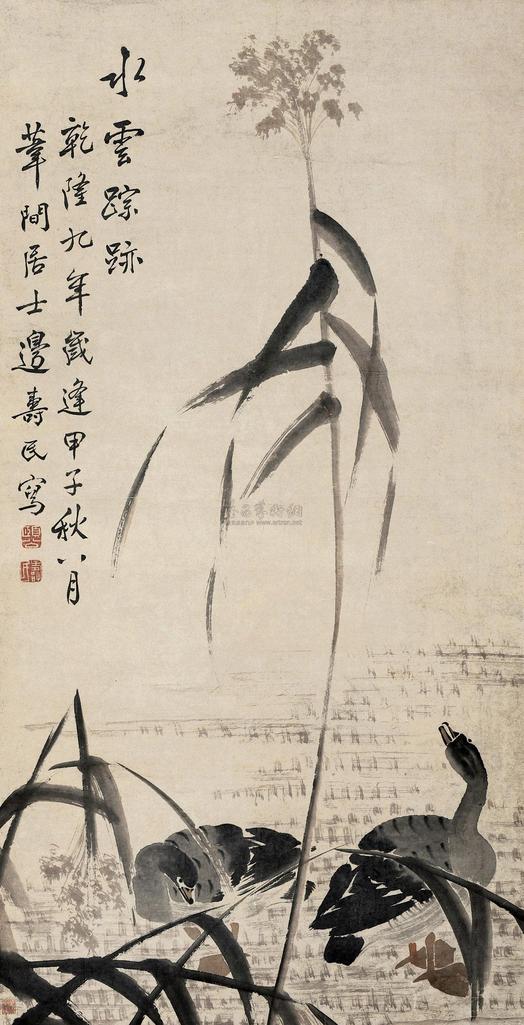 水雲踪跡
乾隆九年歲逢甲子秋八月
葦間居士邊壽民寫
www.artron.net